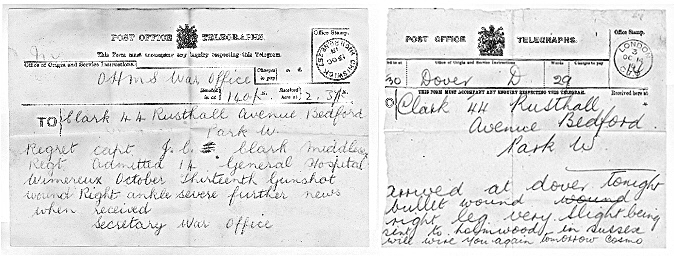 POST OFFICE TELEGRAPHS.
This Form must accompany any inquiry respecting this Telegram.
Office Stamp.
Office of Origin and Service Instructions.
Charges to pay
OHMS War Office
Handed in at
Received here at
TO Clark 44 Rusthall Avenue Bedford
Park W.
Regret capt J.C. Clark Middlesex
Regt Admitted 14 General Hospital
Wimereux October thirteenth Gunshot
wound Right ankle severe further news
when received
Secretary War Office
POST OFFICE TELEGRAPHS.
Office Stamp.
LONDON
Office of Origin and Service Instructions.
Words
Charges to pay
30 Dover D 29
THIS FORM MUST ACCOMPANY ANY INQUIRY RESPECTING THIS TELEGRAM.
Received here at
Clark 44 Rusthall
Avenue Bedford
Park W.
arrived at dover tonight
bullet wound wound
right leg very slight being
sent to holmwood in sussex
will wire you again tomorrow Cosmo